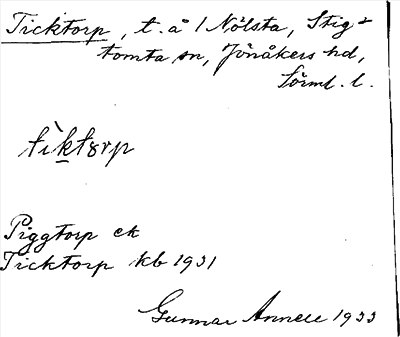 Ticktorp, t. å 1 Nölsta, Stig-
tomta sn, Jönåkers hd,
Sörml. l.
tìktorp
Piggtorp ek
Ticktorp kb 1931
Gunnar Annell 1933